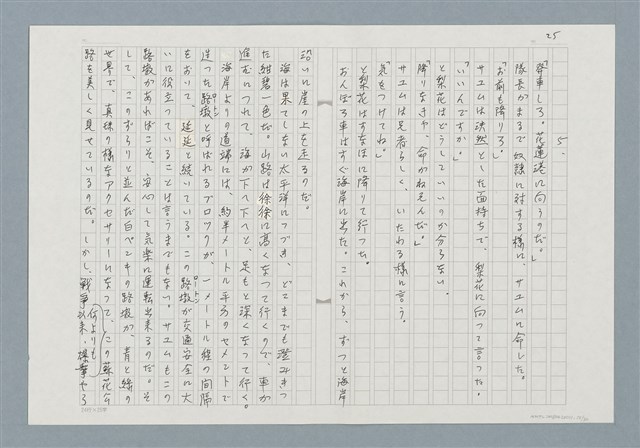 25
5.
「発車しろ。花蓮港に向うのだ。」
隊長がまるで奴隷に対する様に、サユムに命した。
「お前も降りろ。」
サユムは決然とした面持ちで、梨花に向って言った。
「いいんですか。」
と梨花はどうしていいのか分らない。
「降りなきや、命がねえんだ。」
サユムは兄貴らしく、いたわる様に言う。
「気をつけてね。」
と梨花はすなほに降りて行つた。
おんぼろ車はすぐ海岸に出た。これから、ずつと海岸
沿いに崖の上を走るのだ。
海は果てしない太平洋につづき、どこまでも澄みきつ
た紺碧一色だ。山路は徐徐に高くなつて行くので、車が
進むにつれて、海が下へ下へと、足もと深くなつて行く。
海岸よりの道端には、約半メートル平方のセメントで
造つた路搬と呼ばれるブロックが、一メートル程の間隔
をおいて、延延と続いている。この路搬が交通安全に大
いに役立つていることは言うまでもない。サユムもこの
路搬があればこそ、安心して気楽に運転出来るのだ。そ
して、このずらりと並んだ白ペンキの路搬が、青と緑の
世界で、真珠の様なアクセサリーになつて、この蘇花公
路を美しく見せているのだ。しかし、戦争以来、何よりも